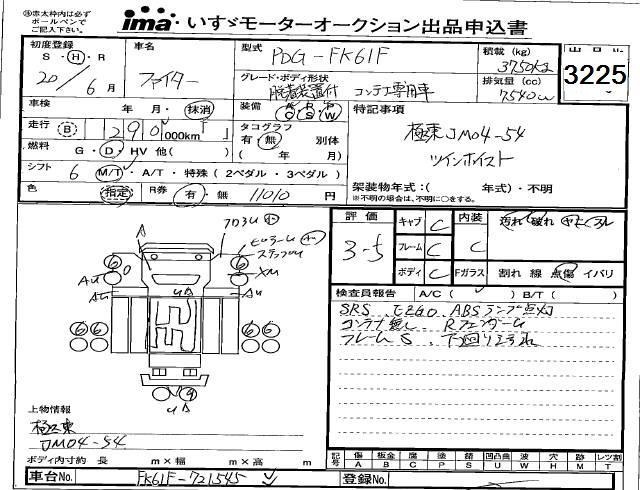 ※赤太枠内は必ず
ボールペンで
ご記入下さい。
ima いすゞモーターオークション出品申込書
初度登録 車名 型式 PDG-FK61F 積載 (kg) 3750kg 出品番号
S・H・R 20年 6月 ファイター グレード・ボディ形状 脱着装置付コンテナ専用車 排気量 (cc) 7540cc 3225
車検 年 月・抹消 装備 AC PS PW 特記事項
走行 B 290,000km 「 」 タコグラフ 有・無 別体 極東JM04-54
燃料 G・D・HV 他( ) ( 年 月) ツインホイスト
シフト 6 M/T・A/T・特殊 (2ペダル・3ペダル) 架装物年式:( 年式)・不明
色 指定 R券 有・無 11010 円 ※不明の場合は、不明に○をする。
評価 キャブ C 内装 汚れ 破れ ヤニ スレ
3.5 フレーム C C
ボディ C Fガラス 割れ 線 点傷 イバリ
検査員報告 A/C ( ✓ ) B/T ( )
SRS、EZGO、ABSランプ点灯
コンテナ無し、Rフェンダーム
フレームS、下廻り
6 0 AU AU 6 6 A UA UA フロアSU 小 ステップU XU AU 6 6 6 6
上物情報
極東
JM04-54
ボディ内寸約 長 m×幅 m×高 m
記号 傷 A 板金 B 腐 C 塗 P 錆 S 凹凸曲 U 波 W 穴 H 跡 M レツ割 T
車台No. FK61F-721545 ✓ 登録No.